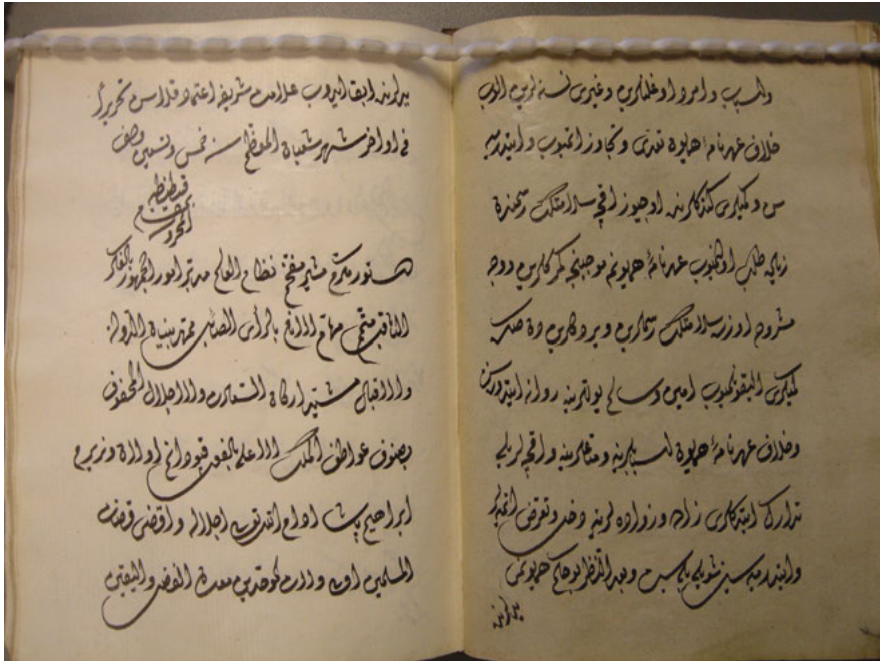 واسباب و امرد اوغلانلرین وغیری نسنه لرین الوب
خلاف عهدنامهٔ همایون تعدی و تجاوز اتمیوب واتدرمیه
سن و کمیلری کتدکلرنده اوچیوز اقچه سلامتلك رسمندن
زیاده طلب اولنمیوب عهدنامهٔ همایونم موجبنجه کمرکلرین و وجه
مشروح اوزره سلامتلك رسملرین ویردکلرین دنصکره
کمیلری الیقونلمیوب امین وسالم یوللرینه روانه ایتدورەسن
وخلاف عهدنامهٔ همایون اسبابلرینه ومتاعلرینه واقچه لریله
تدارك ایتدکلری زاد و زواده لرینه دخل وتعرض
واتدرمیه سین شویله بیله سین وبعد النظر بو حکم همایونمی
یدلرنده
یدلرنده ابقا ایدوب علامت شریفه اعتماد قلاسن تحریرا
فی اواخر شهر شعبان المعظم سنه خمس وتسعین والف
بمقام قسطنطنیه
المحروسه
دستور مکرم مشیر مفخم نظام العالم مدبر امور الجمهور بالفکر
الثاقب متمم مهام الانام بالرأی الصائب ممهد بنیان الدولة
والاقبال مشید ارکان السعادة والاجلال المحفوف
بصنوف عواطف الملك الاعلی بالفعل قپودانم اولان وزیرم
ابراهیم پاشا ادام الله تعالی اجلاله واقضی قضاة
المسلمین اولی ولاة الموحدین معدن الفضل والیقین